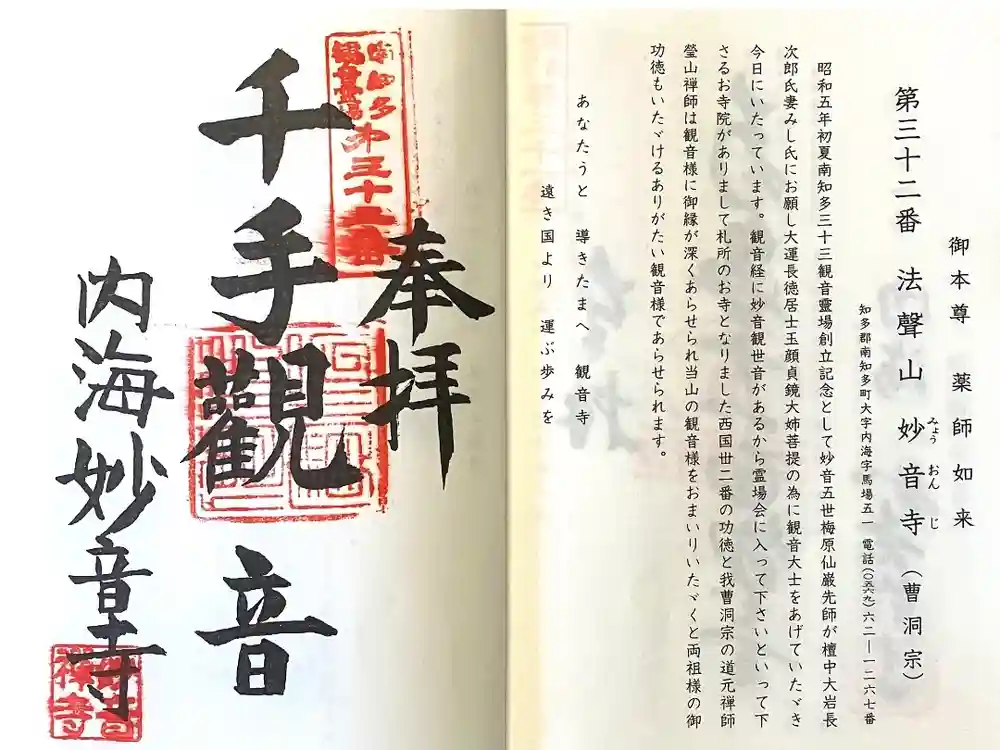 御本尊　薬師如来
第三十二番　法聲山　妙音寺（曹洞宗）
みょう　おん　じ
知多郡南知多町大字内海字馬場五一　電話（〇五六九）六二―一二六七番
昭和五年初夏南知多三十三観音靈場創立記念として妙音五世梅原仙巌先師が檀中大岩長
次郎氏妻みし氏にお願し大運長徳居士玉顔貞鏡大姉菩提の為に観音大士をあげていたゞき
今日にいたっています。観音経に妙音観世音があるから霊場会に入って下さいといって下
さるお寺院がありまして札所のお寺となりました西国丗二番の功徳と我曹洞宗の道元禅師
瑩山禅師は観音様に御縁が深くあらせられ当山の観音様をおまいりいたゞくと両祖様の御
功徳もいたゞけるありがたい観音様であらせられます。
あなたうと　導きたまへ　観音寺
遠き国より　運ぶ歩みを
奉拝
南知多第三十二番
千手觀音
内海妙音寺